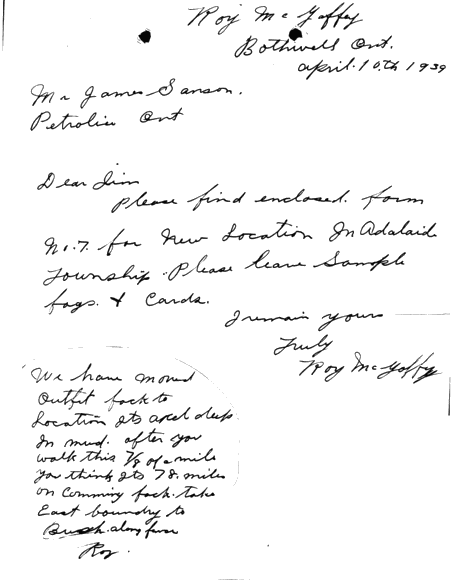 Roy McGaffy
Bothwell Ont.
April. 10th 1939
Mr James Sanson.
Petrolia Ont
Dear Jim
Please find enclosed. form
No. 7. for New Location In Adalaid
Township. Please leave Sample
bags. & Cards.
I remain yours
Truly
Roy McGaffy
We have moved
Outfit back to
Location Its axel deep
In mud. after you
walk this 7/8 of a mile
you think Its 78. miles
on Comming back. take
East boundry to
Bush. along fence
Roy.